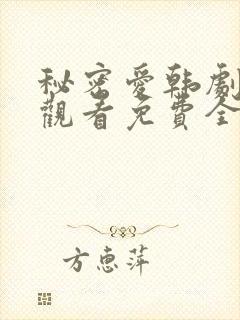 秘密愛韩劇
觀看免費全
方惠萍